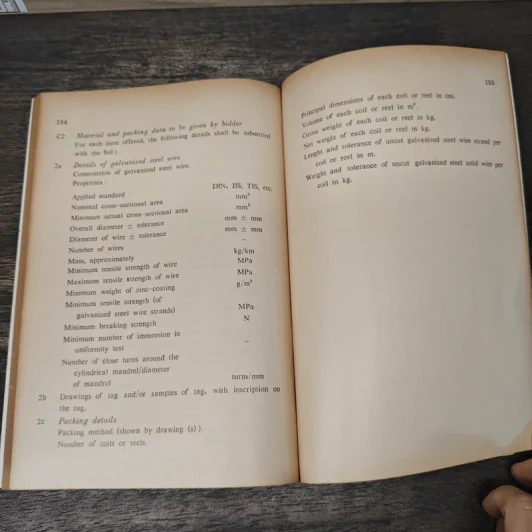 164
C2 Material and packing data to be given by bidder
For each item offered, the following details shall be submitted
with the bid :
2a Details of galvanized steel wire
Construction of galvanized steel wire.
Properties :
DIN, JIS, TIS, etc.
Applied standard mm²
Nominal cross-sectional area mm²
Minimum actual cross-sectional area
Overall diameter ± tolerance mm ± mm
Diameter of wire ± tolerance mm ± mm
Number of wires –
Mass, approximately kg/km
Minimum tensile strength of wire MPa
Maximum tensile strength of wire MPa
Minimum weight of zinc-coating g/m²
Minimum tensile strength (of
galvanized steel wire strands) MPa
Minimum breaking strength N
Minimum number of immersion in
uniformity test –
Number of close turns around the
cylindrical mandrel/diameter
of mandrel turns/mm
2b Drawings of tag and/or samples of tag, with inscription on
the tag.
2c Packing details
Packing method (shown by drawing (s) ).
Number of coils or reels.
165
Principal dimensions of each coil or reel in cm.
Volume of each coil or reel in m³.
Gross weight of each coil or reel in kg.
Net weight of each coil or reel in kg.
Lenght and tolerance of uncut galvanized steel wire strand per
coil or reel in m.
Weight and tolerance of uncut galvanized steel solid wire per
coil in kg.